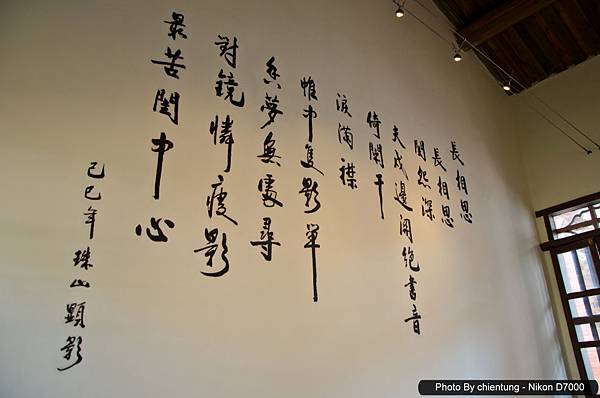 長相思
長相思
閨怨深
夫戍邊關絕書音
倚闌干
淚滿襟
帷中隻影單
香夢無處尋
對鏡憐瘦影
最苦閨中心
己巳年珠山顯影
Photo By chientung - Nikon D7000